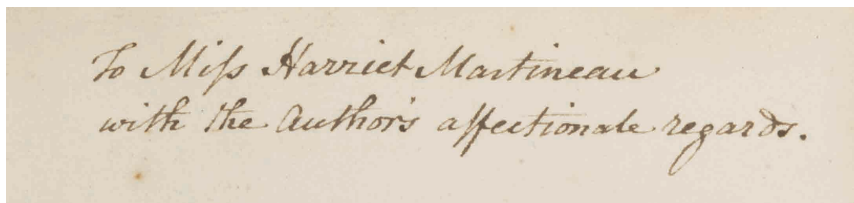 To Miſs Harriet Martineau
with the Author's affectionate regards.